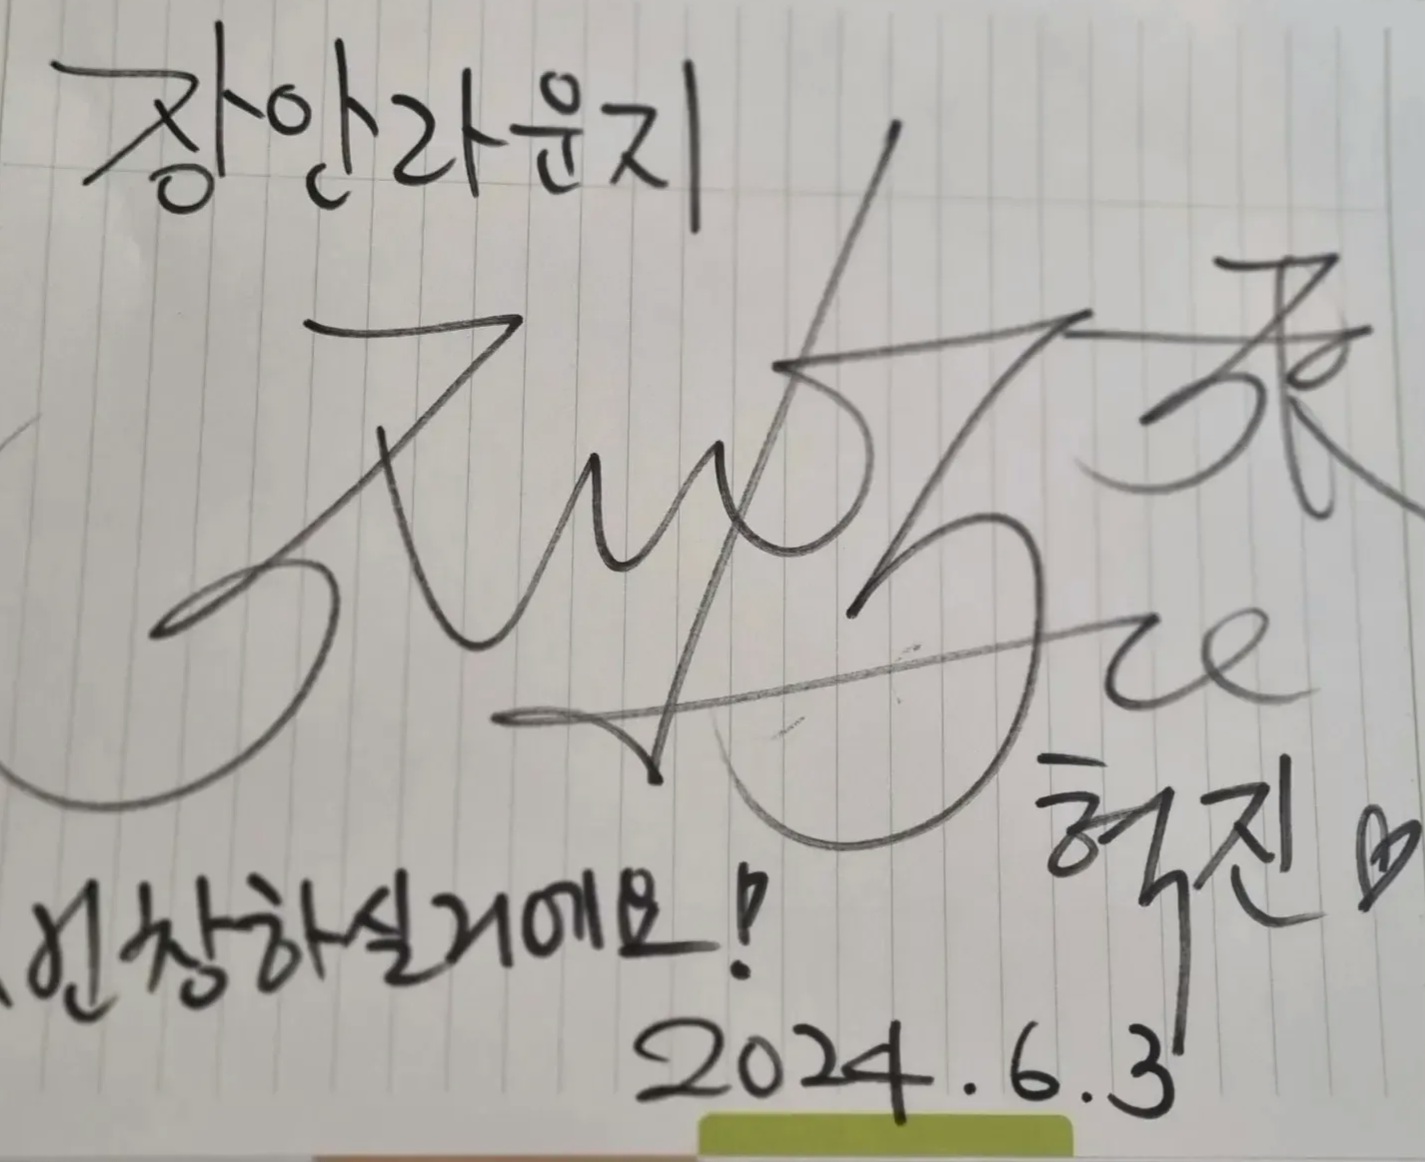 장안라운지
혁진
번창하실거에요!
2024.6.3